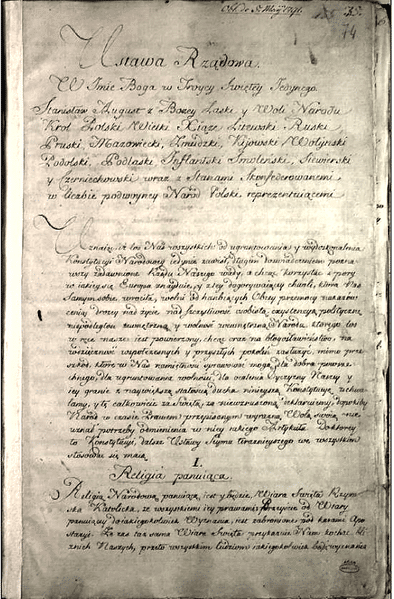 Ustawa Rządowa.
W Imie Boga w Troycy Swiętey Jedynego.
Stanisław August z Bożey Łaski y Woli Narodu
Krol Polski Wielki Xiąże Litewski Ruski
Pruski, Mazowiecki, Zmudzki, Kijowski Wołyński
Podolski, Podlaski Inflantski Smoleński, Siewierski
y Czerniechowski wraz z Stanami Skonfederowanemi
w liczbie podwoyney Narod Polski reprezentuiącemi
Uznaiąc, iż los Nas wszystkich od ugruntowania y wydoskonalenia
Konstytucyi Narodowey iedynie zawisł, długim doswiadczeniem pozna-
wszy zadawnione Rządu Naszego wady, a chcąc korzystać z pory
w iakiey się Europa znayduie, y z tey dogorywaiącey chwili, która Nas
Samym sobie wrociła, wolni od hanbiących Obcey przemocy nakazów
ceniąc drożey nad życie nad szczęsliwość osobistą, exystencyą polityczną
niepodległość zewnętrzną, y wolność wewnętrzną Narodu, którego los
w ręce nasze iest powierzony, chcąc oraz na błogosławieństwo, na
wdzięczność współczesnych y przyszłych pokoleń zasłużyć, mimo prze-
szkód, które w Nas namiętności sprawować mogą, dla dobra powsze-
chnego, dla ugruntowania wolności, dla ocalenia Oyczyzny Naszey y
iey granic z naywiększą stałością ducha ninieyszą Konstytucyę uchwa-
lamy, y tę całkowicie za świętą, za niewzruszoną deklaruiemy, dopókiby
Naród w czasie Prawem przepisanym wyraźną Wolą swoią nie
uznał potrzeby odmienienia w niey iakiego Artykułu. Do którey
to Konstytucyi, dalsze Ustawy Seymu teraznieyszego we wszystkim
stosować się maią
I.
Religia panuiąca
Religią Narodową panuiącą, iest y będzie Wiara Święta Rzym-
ska Katolicka, ze wszystkiemi iey prawami, przeyście od Wiary
panuiącey do iakiegokolwiek Wyznania, iest zabronione pod karami Apo-
stazyi. Że zaś ta sama Wiara Święta przykazuie Nam kochać bli-
źnich Naszych, przeto wszystkim ludziom iakiegokolwiek bądź wyznania